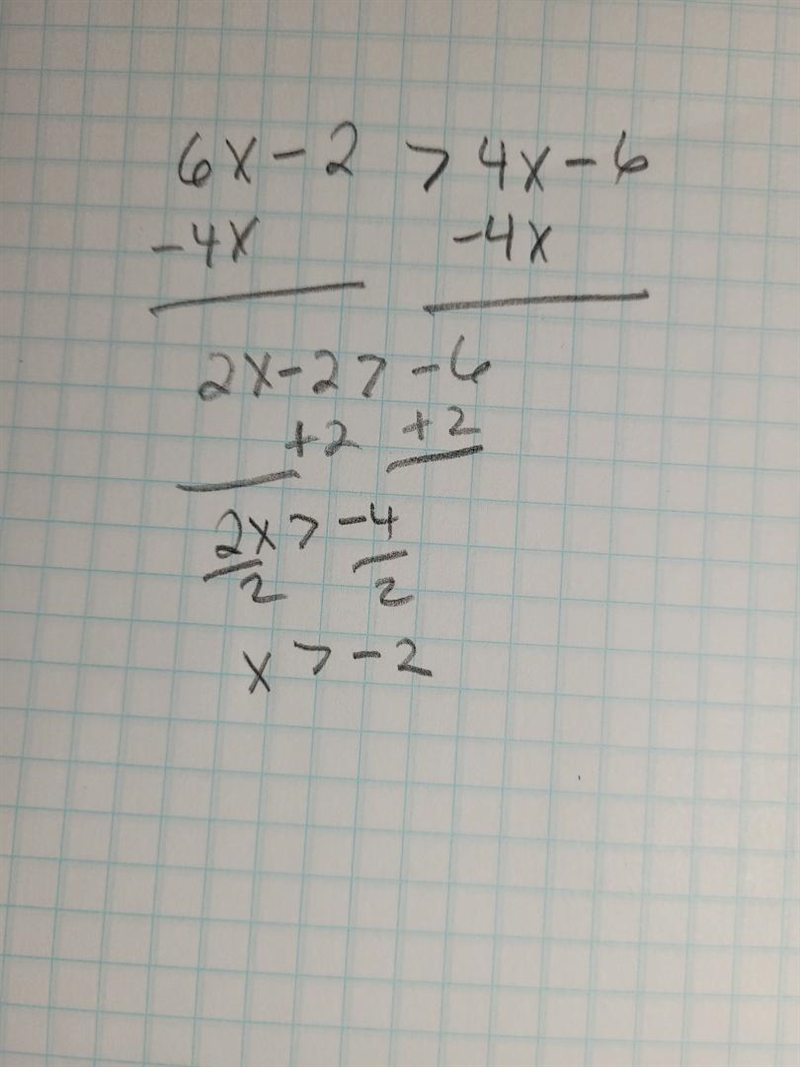 6x - 2 > 4x - 6
-4x -4x
2x - 2 > -6
+2 +2
2x > -4
2 2
x > -2